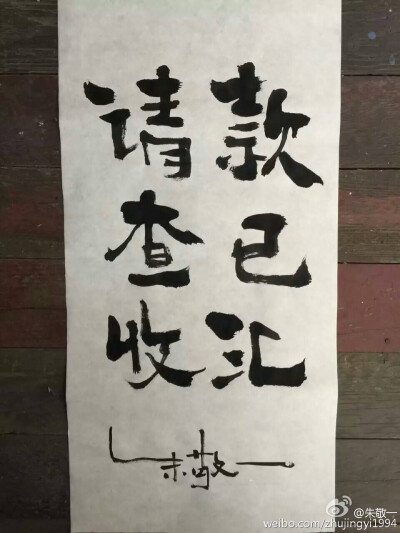 款已汇
请查收
朱敬一
@朱敬一
weibo.com/zhujingyi1994